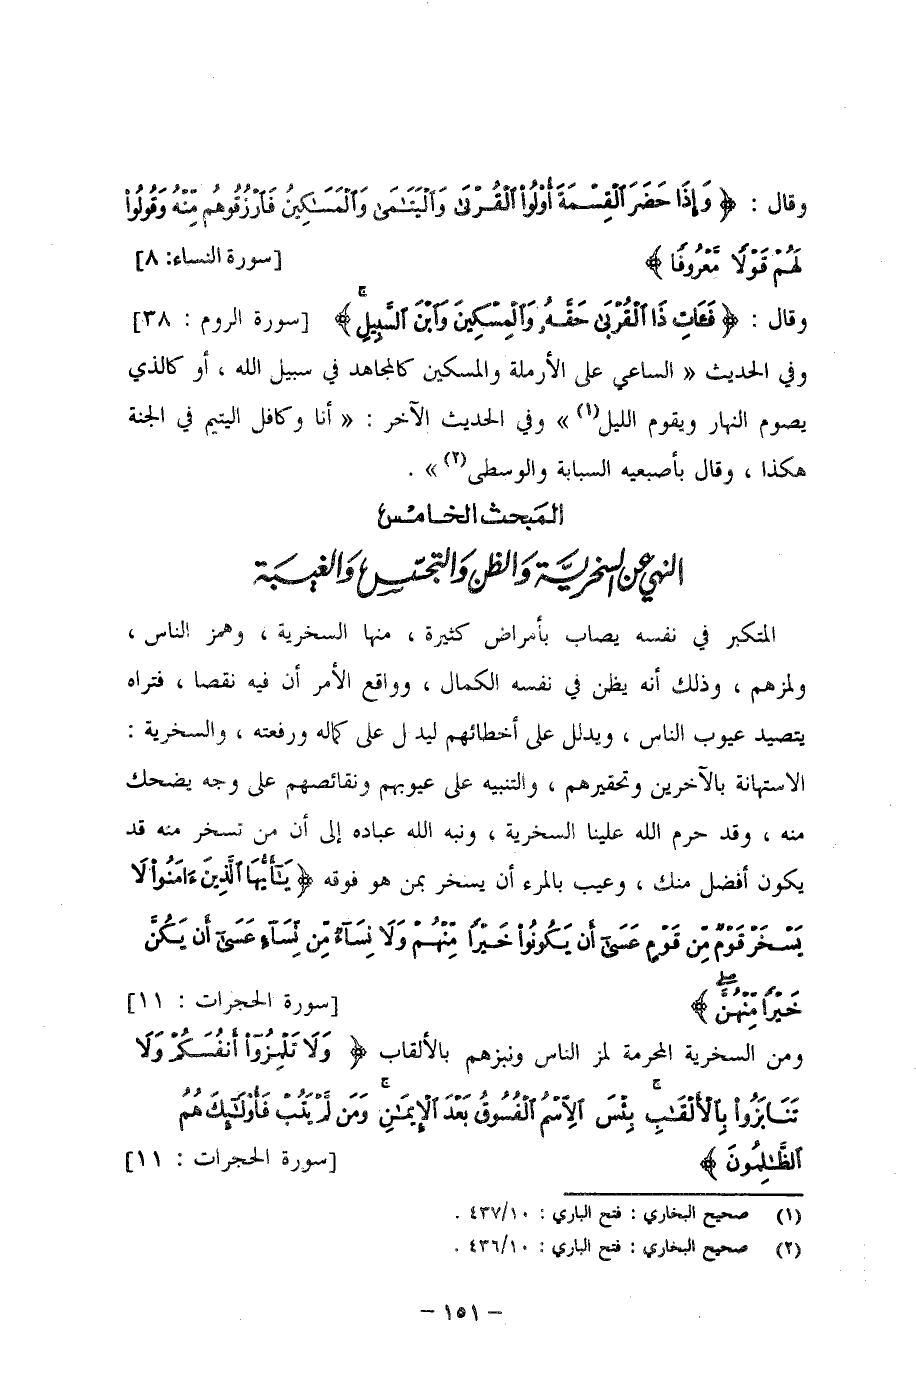 وقال : ﴿ وَإِذَا حَضَرَ ٱلْقِسْمَةَ أُوْلُوا۟ ٱلْقُرْبَىٰ وَٱلْيَتَٰمَىٰ وَٱلْمَسَٰكِينُ فَٱرْزُقُوهُم مِّنْهُ وَقُولُوا۟
لَهُمْ قَوْلًا مَّعْرُوفًا ﴾ [سورة النساء: ٨]
وقال : ﴿ فَـَٔاتِ ذَا ٱلْقُرْبَىٰ حَقَّهُۥ وَٱلْمِسْكِينَ وَٱبْنَ ٱلسَّبِيلِ ۚ ﴾ [سورة الروم : ٣٨]
وفي الحديث « الساعي على الأرملة والمسكين كالمجاهد في سبيل الله ، أو كالذي
يصوم النهار ويقوم الليل(١) » وفي الحديث الآخر : « أنا وكافل اليتيم في الجنة
هكذا ، وقال بأصبعيه السبابة والوسطى(٢) » .
المبحث الخامس
النهي عن السخرية والظن والتجسس والغيبة
المتكبر في نفسه يصاب بأمراض كثيرة ، منها السخرية ، وهمز الناس ،
ولمزهم ، وذلك أنه يظن في نفسه الكمال ، وواقع الأمر أن فيه نقصا ، فتراه
يتصيد عيوب الناس ، ويدلل على أخطائهم ليدل على كماله ورفعته ، والسخرية :
الاستهانة بالآخرين وتحقيرهم ، والتنبيه على عيوبهم ونقائصهم على وجه يضحك
منه ، وقد حرم الله علينا السخرية ، ونبه الله عباده إلى أن من تسخر منه قد
يكون أفضل منك ، وعيب بالمرء أن يسخر بمن هو فوقه ﴿ يَٰٓأَيُّهَا ٱلَّذِينَ ءَامَنُوا۟ لَا
يَسْخَرْ قَوْمٌ مِّن قَوْمٍ عَسَىٰٓ أَن يَكُونُوا۟ خَيْرًا مِّنْهُمْ وَلَا نِسَآءٌ مِّن نِّسَآءٍ عَسَىٰٓ أَن يَكُنَّ
خَيْرًا مِّنْهُنَّ ۖ ﴾ [سورة الحجرات : ١١]
ومن السخرية المحرمة لمز الناس ونبزهم بالألقاب ﴿ وَلَا تَلْمِزُوٓا۟ أَنفُسَكُمْ وَلَا
تَنَابَزُوا۟ بِٱلْأَلْقَٰبِ ۚ بِئْسَ ٱلِٱسْمُ ٱلْفُسُوقُ بَعْدَ ٱلْإِيمَٰنِ ۚ وَمَن لَّمْ يَتُبْ فَأُو۟لَٰٓئِكَ هُمُ
ٱلظَّٰلِمُونَ ﴾ [سورة الحجرات : ١١]
(١) صحيح البخاري : فتح الباري : ٤٣٧/١٠ .
(٢) صحيح البخاري : فتح الباري : ٤٣٦/١٠ .
- ١٥١ -